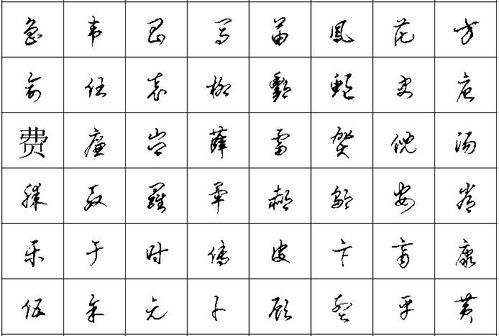 鲁韦昌马苗鳳花方
俞任袁柳酆鲍史唐
费廉岑薛雷贺倪汤
滕殷羅毕郝邬安常
乐于时傅皮卞齐康
伍余元卜顾孟平黄